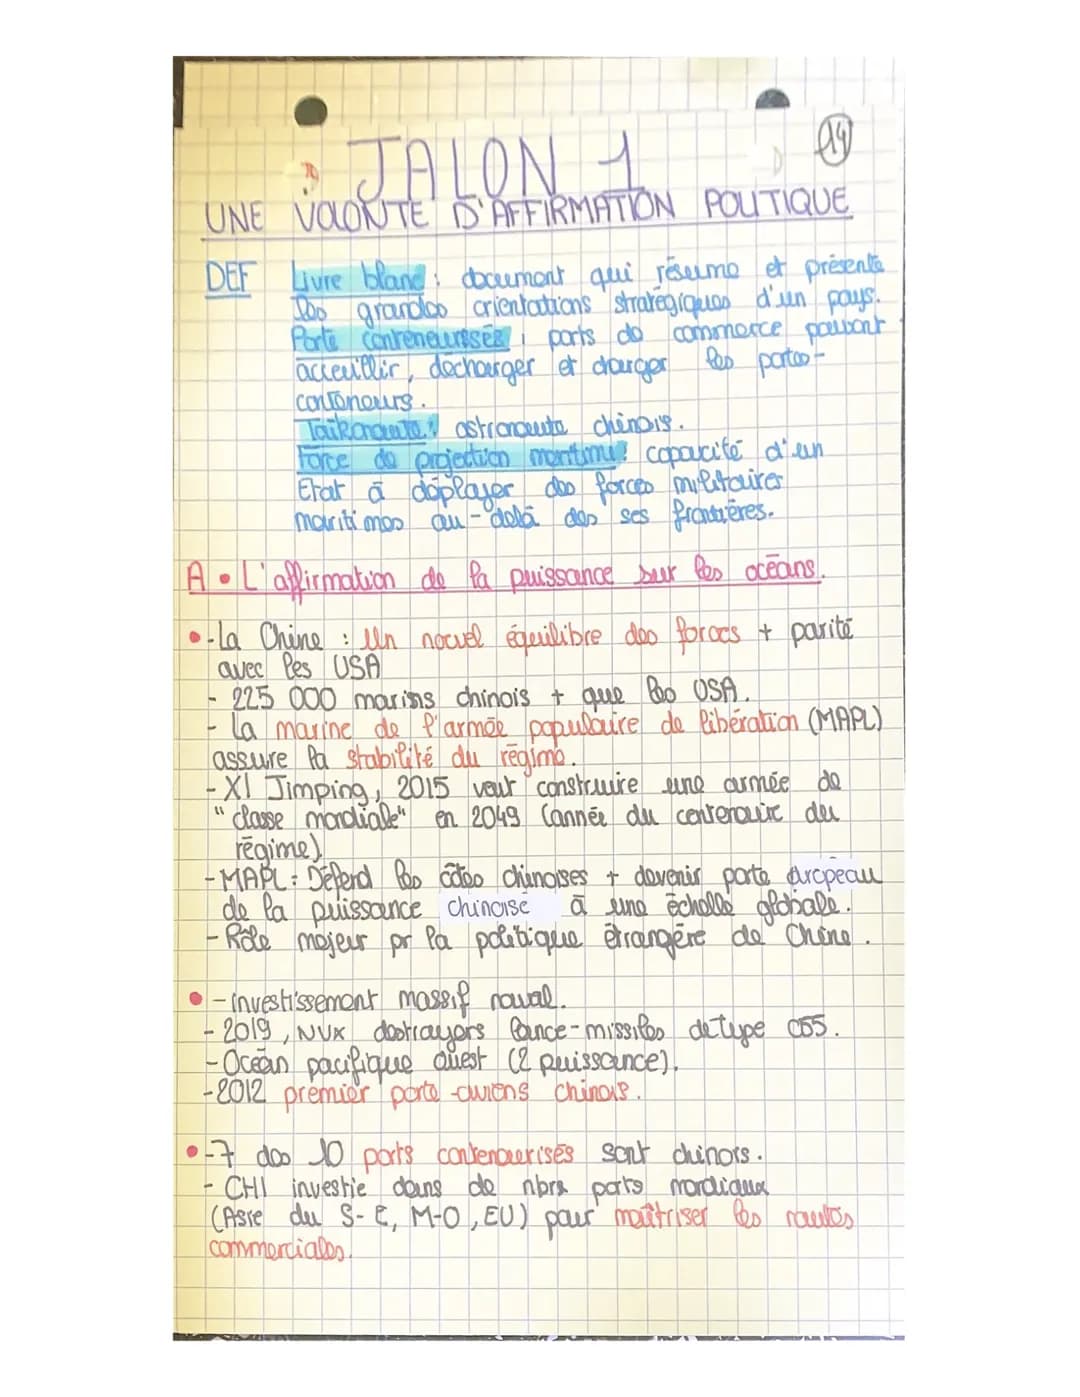 14
JALON 1
UNE VOLONTE D'AFFIRMATION POLITIQUE
DEF Livre blanc : document qui résume et présente
les grandes orientations stratégiques d'un pays.
Porte conteneurisés : ports de commerce pouvant
acceuillir, décharger et charger les portes-
conteneurs.
Taïkonaute : astronaute chinois.
Force de projection maritime : capacité d'un
Etat à déployer des forces militaires
maritimes au-delà des ses frontières.
A • L'affirmation de la puissance sur les océans.
• -La Chine : Un nouvel équilibre des forces + parité
avec les USA
- 225 000 marins chinois + que les USA.
- La marine de l'armée populaire de libération (MAPL)
assure la stabilité du régime.
- XI Jimping, 2015 veut construire une armée de
"classe mondiale" en 2049 (année du centenaire du
régime).
- MAPL : Défend les côtes chinoises + devenir porte drapeau
de la puissance chinoise à une échelle globale.
- Rôle majeur pr la politique étrangère de Chine.
• - investissement massif naval.
- 2019, NVX destroyers lance-missiles de type 055.
- Océan pacifique ouest (2 puissance).
- 2012 premier porte-avions chinois.
• -7 des 10 ports conteneurisés sont chinois.
- CHI investie dans de nbrx ports mondiaux
(Asie du S-E, M-O, EU) pour maîtriser les routes
commerciales.